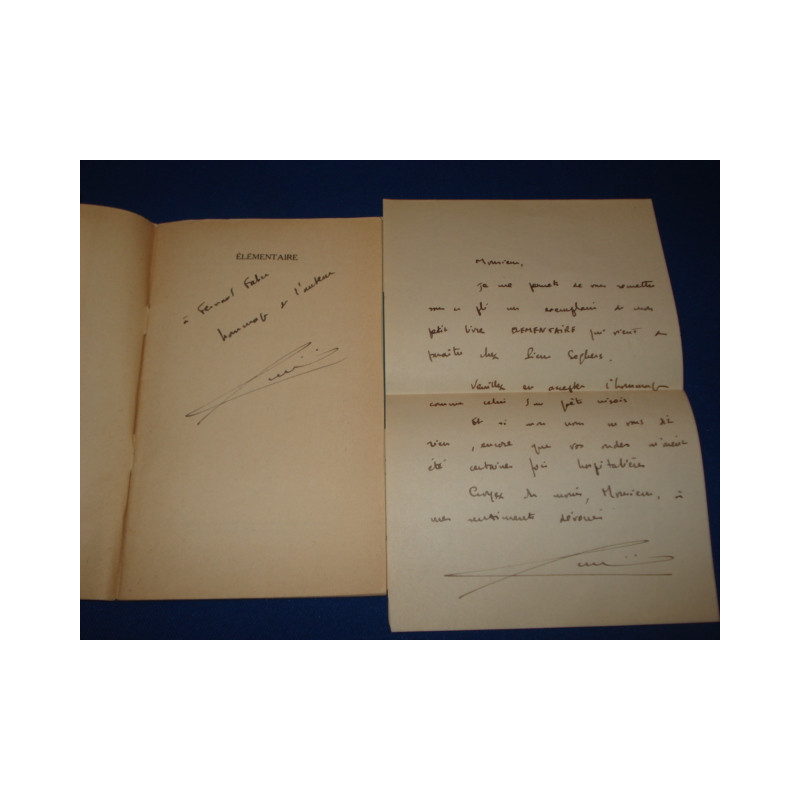 ÉLÉMENTAIRE
à Fernand Fabre
hommage de l'auteur
Monsieur,
je me permets de vous remettre
sous ce pli un exemplaire de mon
petit livre ELEMENTAIRE qui vient de
paraître chez Pierre Seghers.
Veuillez en accepter l'hommage
comme celui d'un poète niçois
Et si mon nom ne vous dit
rien, encore que vos ondes m'aient
été certaines fois hospitalières
Croyez du moins, Monsieur, à
mes sentiments dévoués